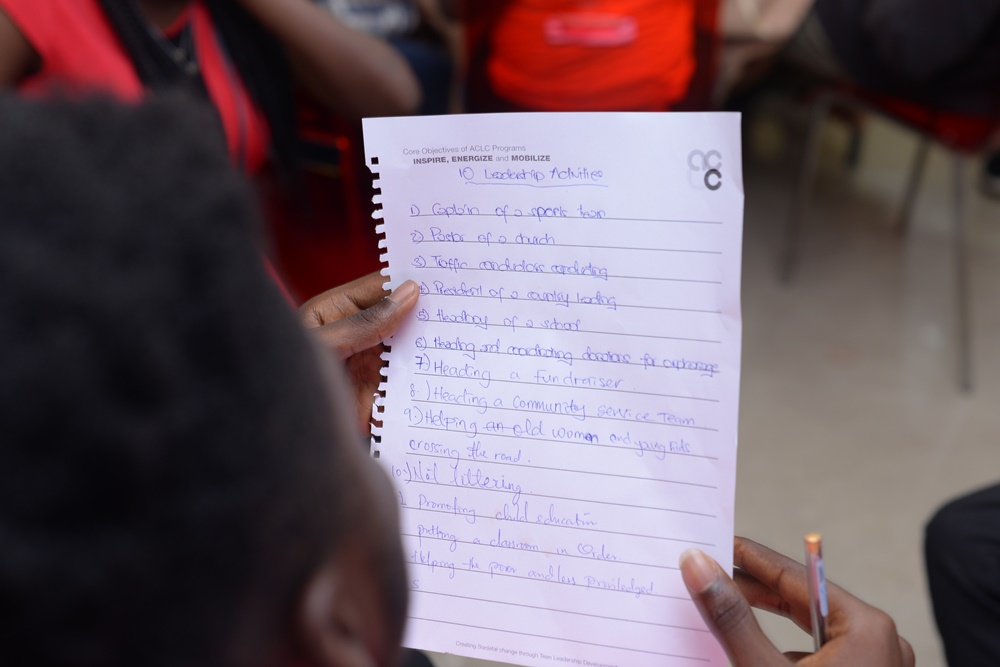 Core Objectives of ACLC Programs
INSPIRE, ENERGIZE and MOBILIZE
10 Leadership Activities
1) Captain of a sports team
2) Pastor of a church
3) Traffic conductors conducting
4) President of a country leading
5) Headboy of a school
6) Heading and coordinating donations for orphanage
7) Heading a fundraiser
8.) Heading a Community Service Team
9.) Helping an old women and young kids
crossing the road.
10.) Not littering.
Promoting child education
putting a classroom in Order
Helping the poor and less priviledged
Creating Societal change through Teen Leadership Development